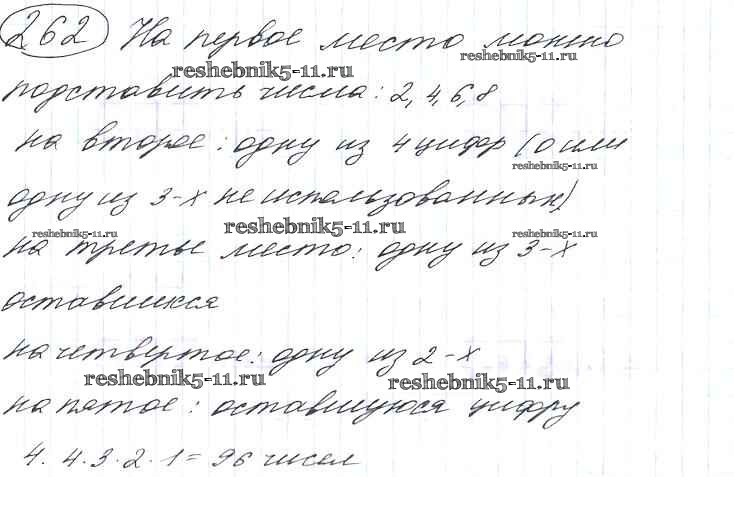 262 На первое место можно
reshebnik5-11.ru
reshebnik5-11.ru
подставить числа: 2, 4, 6, 8
на второе: одну из 4 цифр (0 или
reshebnik5-11.ru
одну из 3-х неиспользованных)
reshebnik5-11.ru
reshebnik5-11.ru
reshebnik5-11.ru
на третье место: одну из 3-х
оставшихся
на четвертое: одну из 2-х
reshebnik5-11.ru
reshebnik5-11.ru
на пятое: оставшуюся цифру
4. 4. 3. 2. 1 = 96 чисел